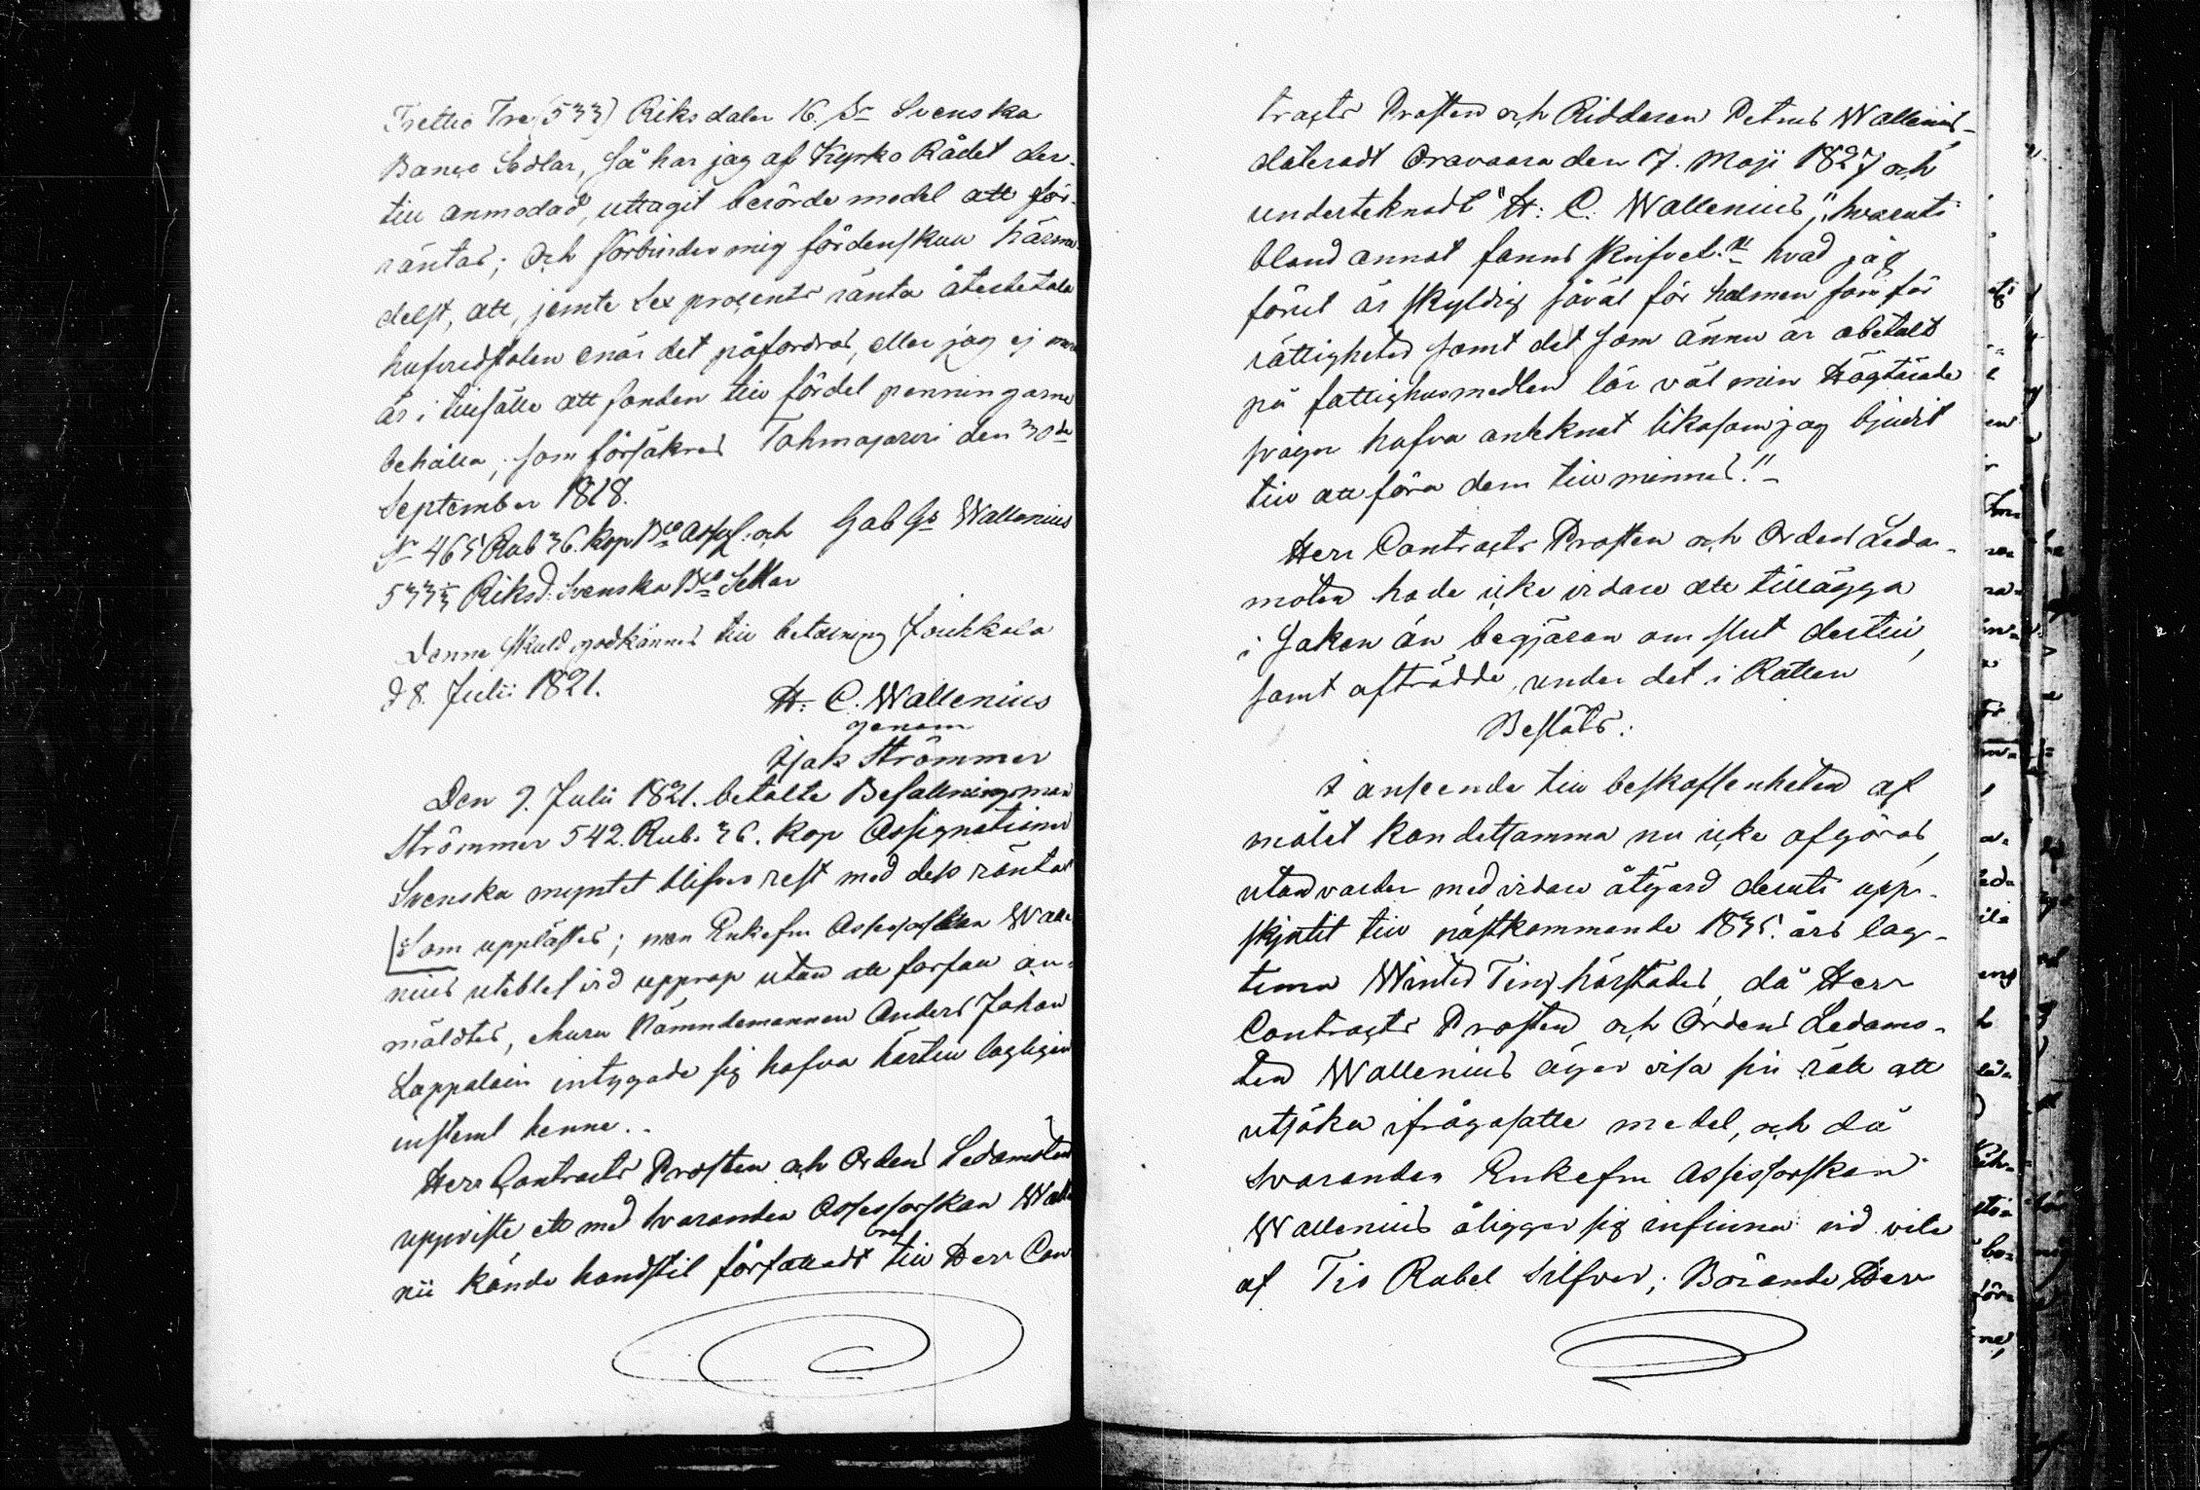 Trettio Tre (533) Riksdaler 16. Sr Svenska
Banco Sedlar, så har jag af Kyrko Rådet der-
till anmodad, uttagit berörde medel att för-
räntas; och förbinder mig fördenskull härme-
delst, att, jemte Sex procents ränta återbetala
hufvudstolen enär det påfordras, eller jag ej mera
är i tillfälle att fonden till fördel penningarne
behålla, som försäkras Tohmajarvi den 30de
September 1818.
No 465 Rub 36. kop Bco Assig: och Gab Gs Wallenius
533⅓ Riksd: Svenska Bco Sedlar
Denna skuld godkännes till betalning Joukkola
d 8. Julii 1821.
H: C. Wallenius
genom
Isak Strömmer
Den 9. Julii 1821. betalte Befallningsman
Strömmer 542. Rub. 36. kop Assignationer
Svenska myntet blifver rest med dess räntor
Som upplästes; men Enkefru Assessorskan Walle-
nius uteblef vid upprop utan att förfall an-
mäldtes, churu Nämndemannen Anders Johan
Lappalain intygade sig hafva härtill lagligen
instemt henne..
Herr Contracts Prosten och Ordens Ledamoten
uppviste ett med Svaranden Assessorskan Walle
bref
nii kände handstil författadt till Herr Con
tracts Prosten och Riddaren Petrus Wallenius,
dateradt Oravaara den 17. Maji 1827 och
underteknadt "H: C. Wallenius", hvaruti
bland annat fanns skrifvet:" hvad jag
förut är skyldig såväl för halmen som för
rättigheten samt det som ännu är obetalt
på fattighusmedlen lär väl min Högtärade
svåger hafva anteknat likasom jag bjudit
till att föra dem till minnes."
Herr Contracts Prosten och Ordens Leda-
moten hade icke vidare att tillägga
i saken än begjäran om slut dertill,
samt afträdde, under det i Rätten
Beslöts:
I anseende till beskaffenheten af
målet kan detsamma nu icke afgöras,
utan varder med vidare åtgärd deruti upp-
skjutit till nästkommande 1835. års lag-
tima Winter Ting härstädes, då Herr
Contracts Prosten och Ordens Ledamo-
ten Wallenius äger visa sin rätt att
utsöka ifrågasatte medel, och då
Svaranden Enkefru Assessorskan
Wallenius åligger sig infinna vid vite
af Tio Rubel Silfver; Börande Herr